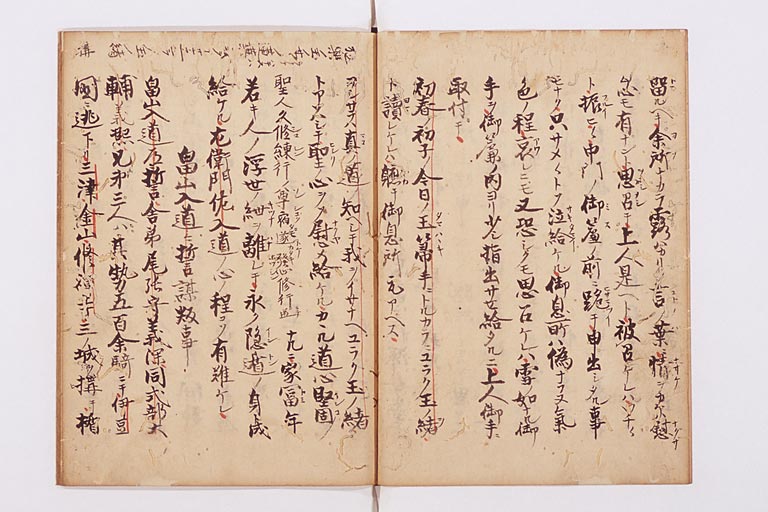 留ルヘキ余所ナカラ露ハカリノ言ノ葉ニ情ヲカケハ慰
心モ有ナント思召テ上人是ヘト被召ケレハワナヽヽ
ト振ヒヽ中門ノ御簾ノ前ニ跪テ申出シタル事
モナク只サメヽヽトソ泣給ケル御息所ハ偽ナラヌ気
色ノ程哀ニモ又恐シクモ思召ケレハ雪ノ如ナル御
手ヲ御簾ノ内ヨリ少シ指出サセ給タルニ上人御手ニ
取付テ
初春ノ初子ノ今日ノ玉箒手ニトルカラニユラク玉ノ緒
ト讀レケレハ軈テ御息所
ヨシサラハ真ノ道ノ知ヘシテ我ヲイサナヘユラク玉ノ緒
トアソハシテ聖ノ心ヲソ慰メ給ケルカヽル道心堅固ノ
聖人久修練行ノ尊宿遂発心修行
ニ家富年
若キ人ノ浮世ノ紲ヲ離レテ永ク隠遁ノ身ト成
給ケル左衛門佐入道ノ心ノ程コソ有難ケレ
畠山入道々誓謀叛事
畠山入道々誓舎弟尾張守義深同式部大
輔義熙兄弟三人ハ其勢五百余騎ニテ伊豆
國ニ逃下リ三津金山修禅寺三ノ城ヲ構テ楯